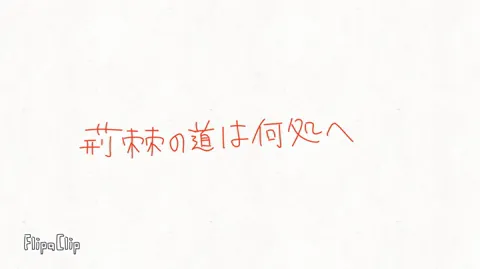 荊棘の道は何処へ
FlipaClip